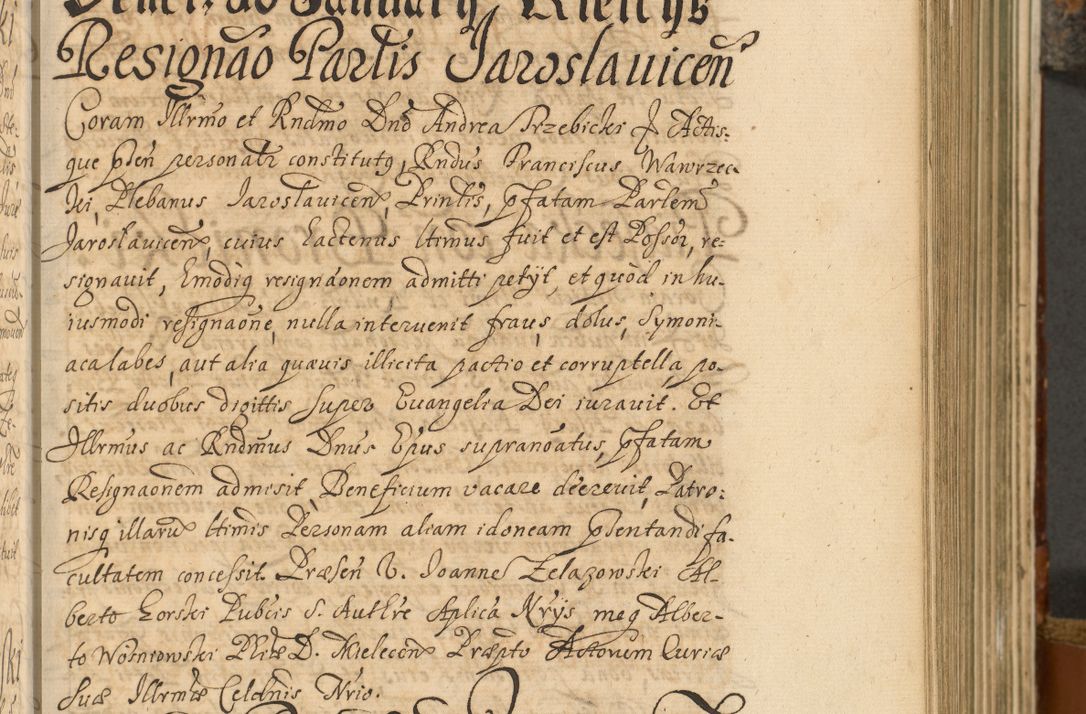 Resignāo Partis Jaroslauiceñ
Coram Illr̃mo et Rndmo Dnō Andrea Trzebicki & Actis-
que p̃sen̄ personalr constitutq, Rndus Franciscus Wawrzec-
ki, Plebanus Jaroslaviceñ, Printis, p̃fatam Partem
Jaroslauiceñ, cuius hactenus ltimus fuit et est Possor, re-
signauit, Emodiq resignãonem admitti petÿt, et quòd in hu-
iusmodi resignãone, nulla interuenit fraus, dolus, Symoni-
aca labes, aut alia quæuis illicita pactio et corruptella, po-
sitis duobus digittis super Euangelia Dei iurauit. Et
Illrmus ac Rndmus Dnus Ep̃us supranõatus, p̃fatam
Resignaonem admisit, Beneficium vacare decreuit, Patro-
nisq illarũ ltimis Personam aliam idoneam p̃sentandi fa-
cultatem concessit. Præsen V. Joanne Zelazowski Al-
berto Gorski Publis S. Authre Aplica Nrijs, meq Alber-
to Wosniowski Plite D. Mieleceñ Præpto Actorum Curiæ
Suæ Illrmæ Celdnis Nrio.